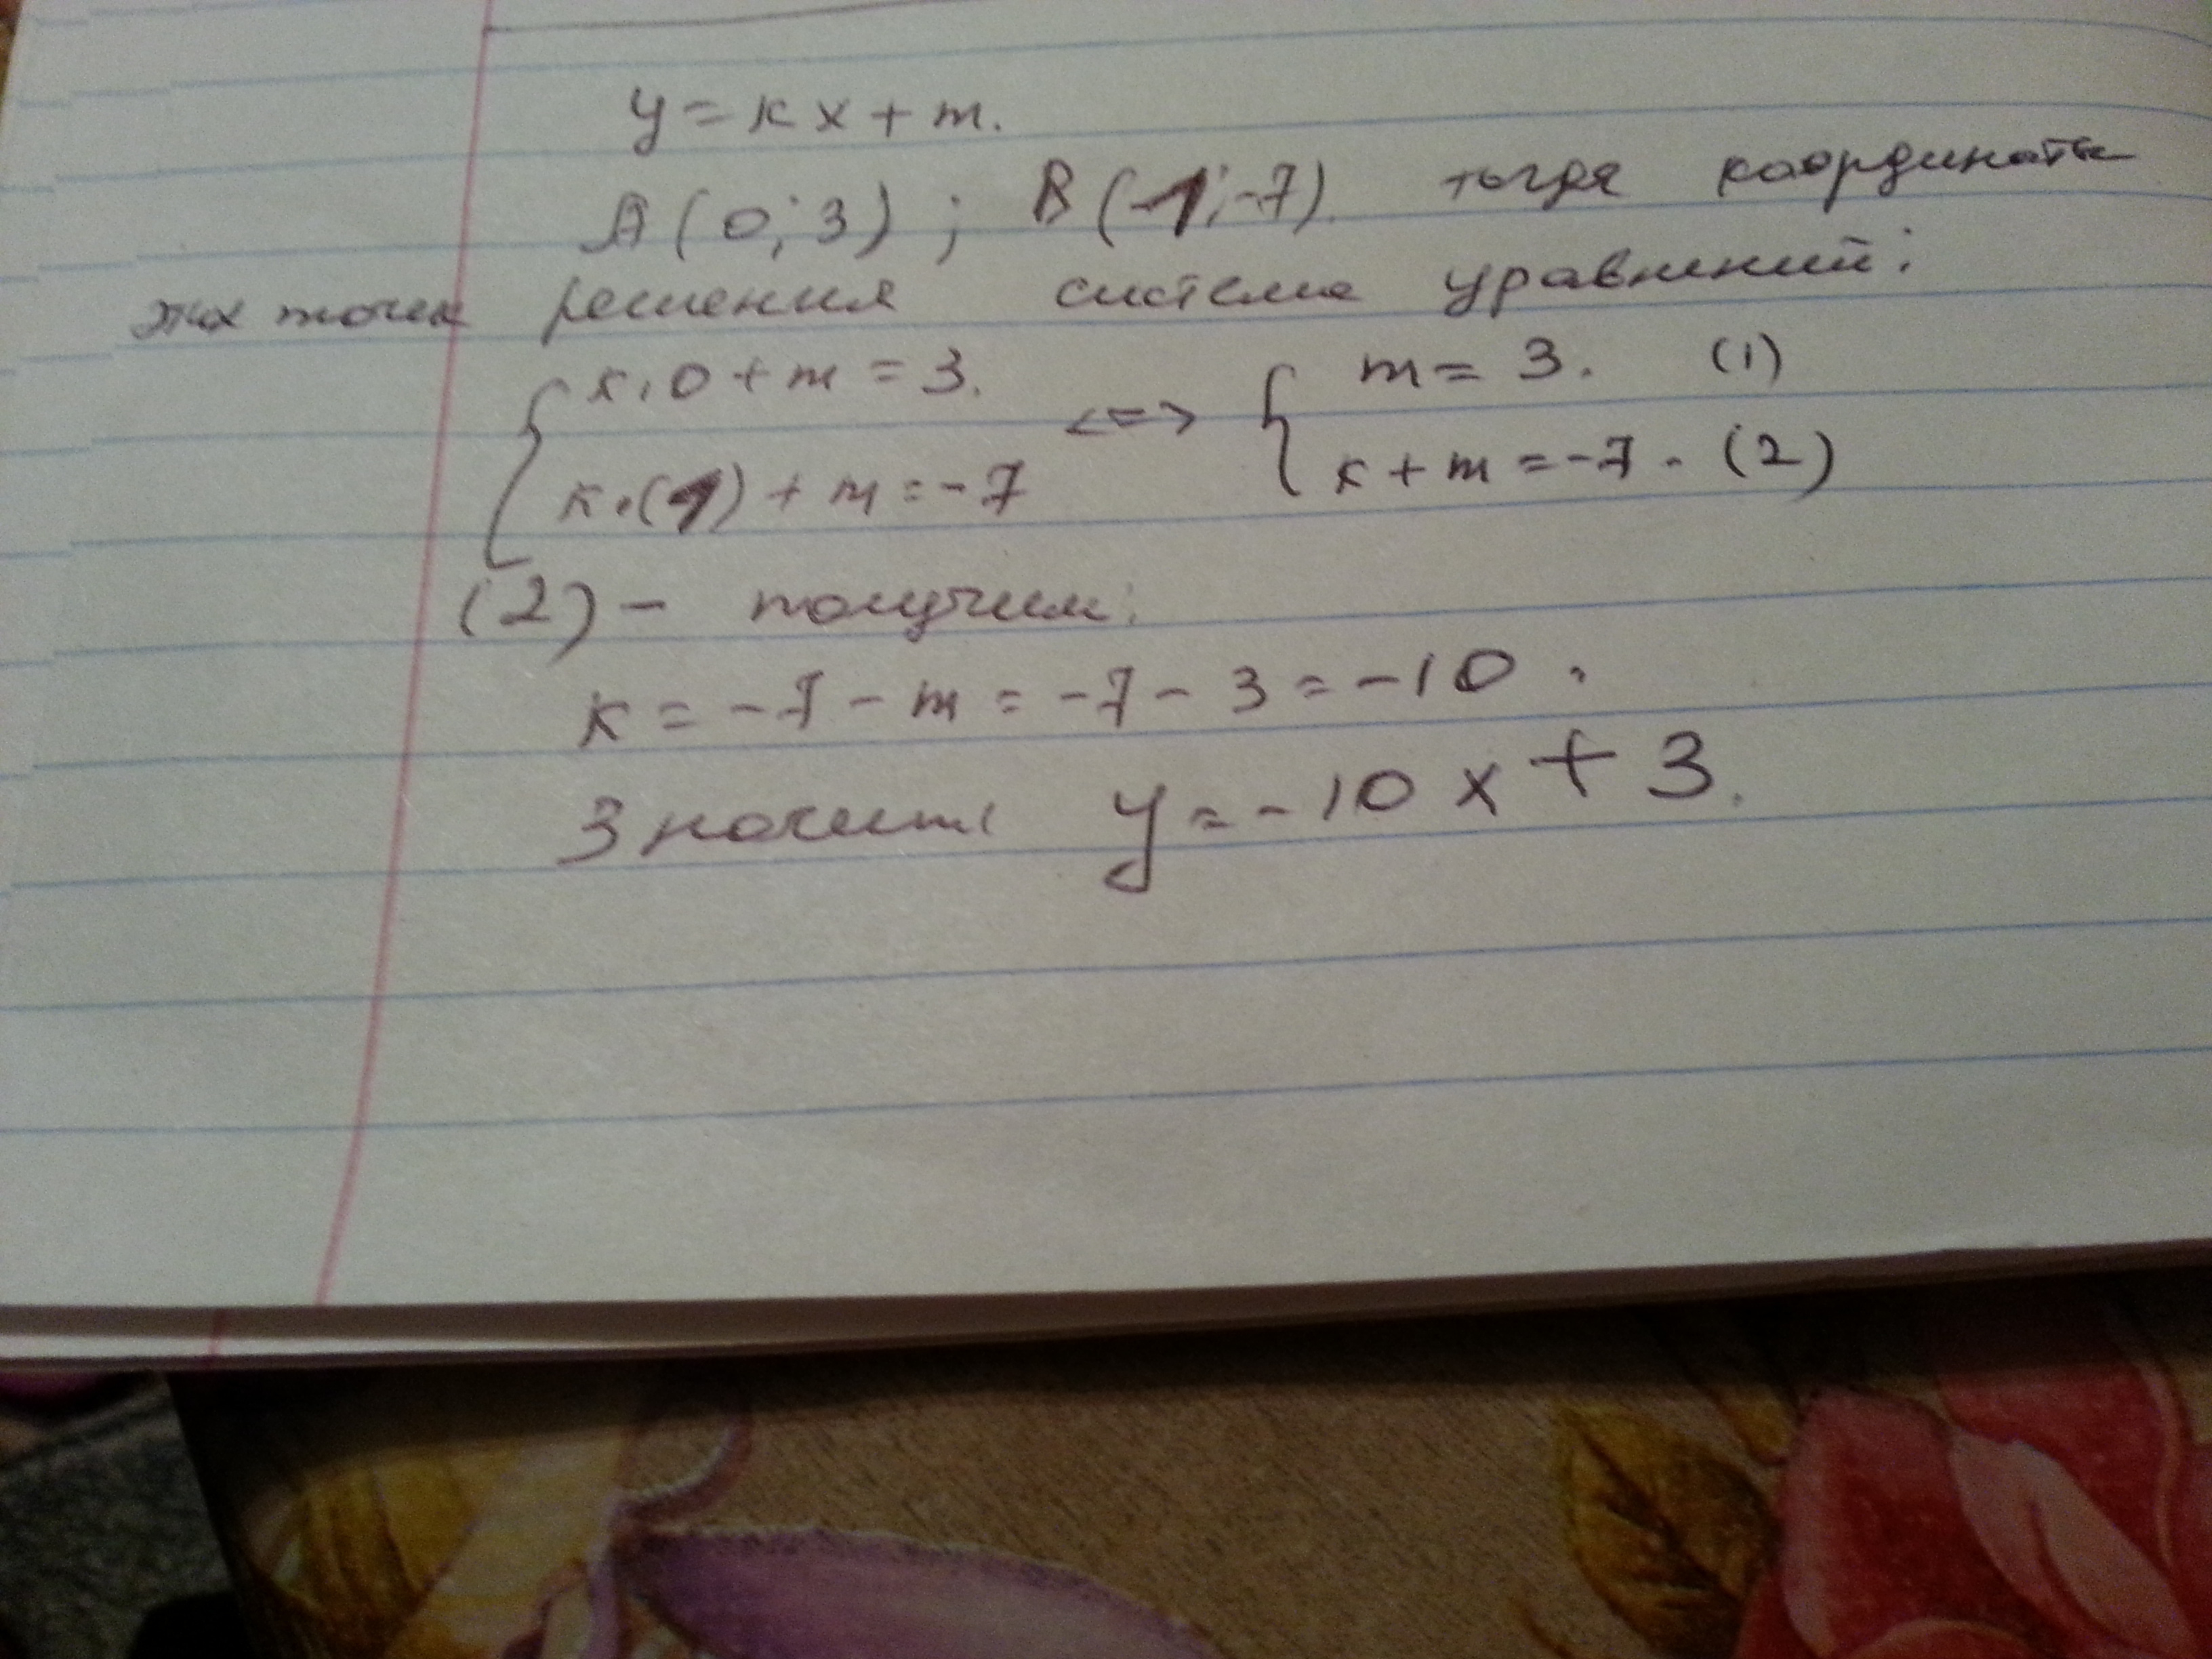 y = kx + m.
A(0; 3); B(-1; -7). тогда координаты
этих точек решения система уравнений:
k·0 + m = 3. <=> m = 3. (1)
k·(1) + m = -7 k + m = -7. (2)
(2) - получим:
k = -7 - m = -7 - 3 = -10.
Значит: y = -10x + 3.